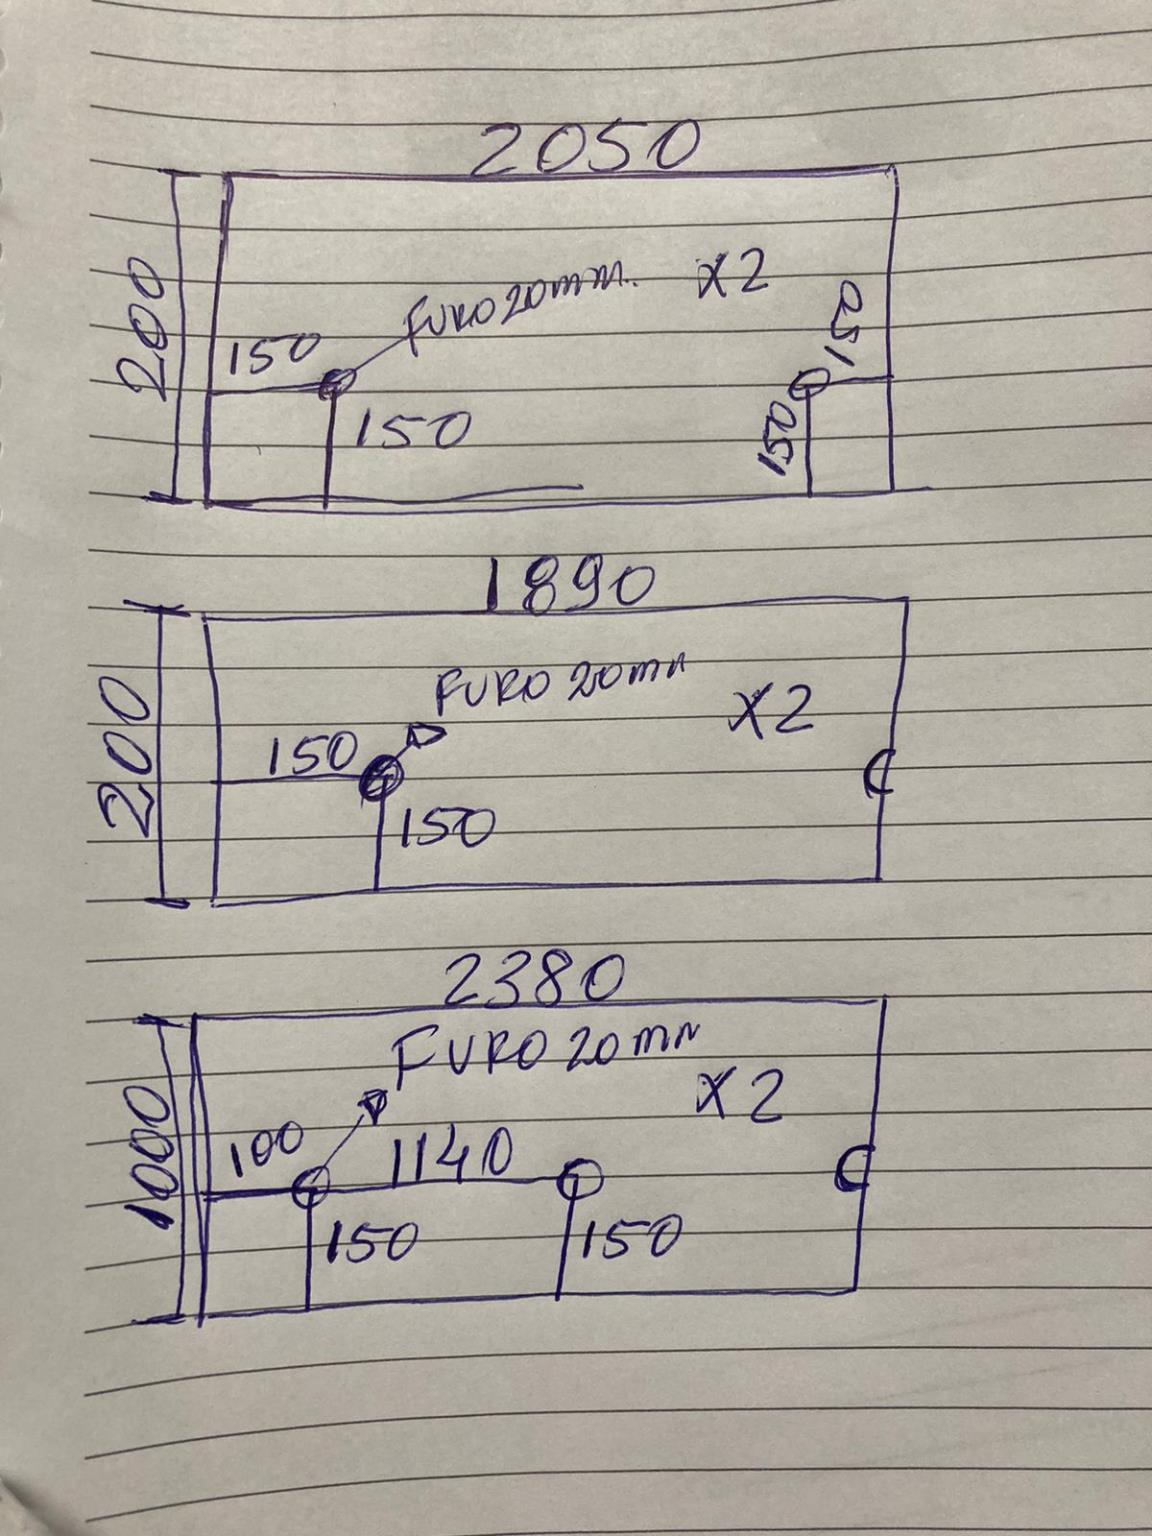 2050
200
FURO 20mm.
X2
150
150
150
150
1890
200
FURO 20mm
X2
150
150
2380
1000
FURO 20mm
X2
100
1140
150
150